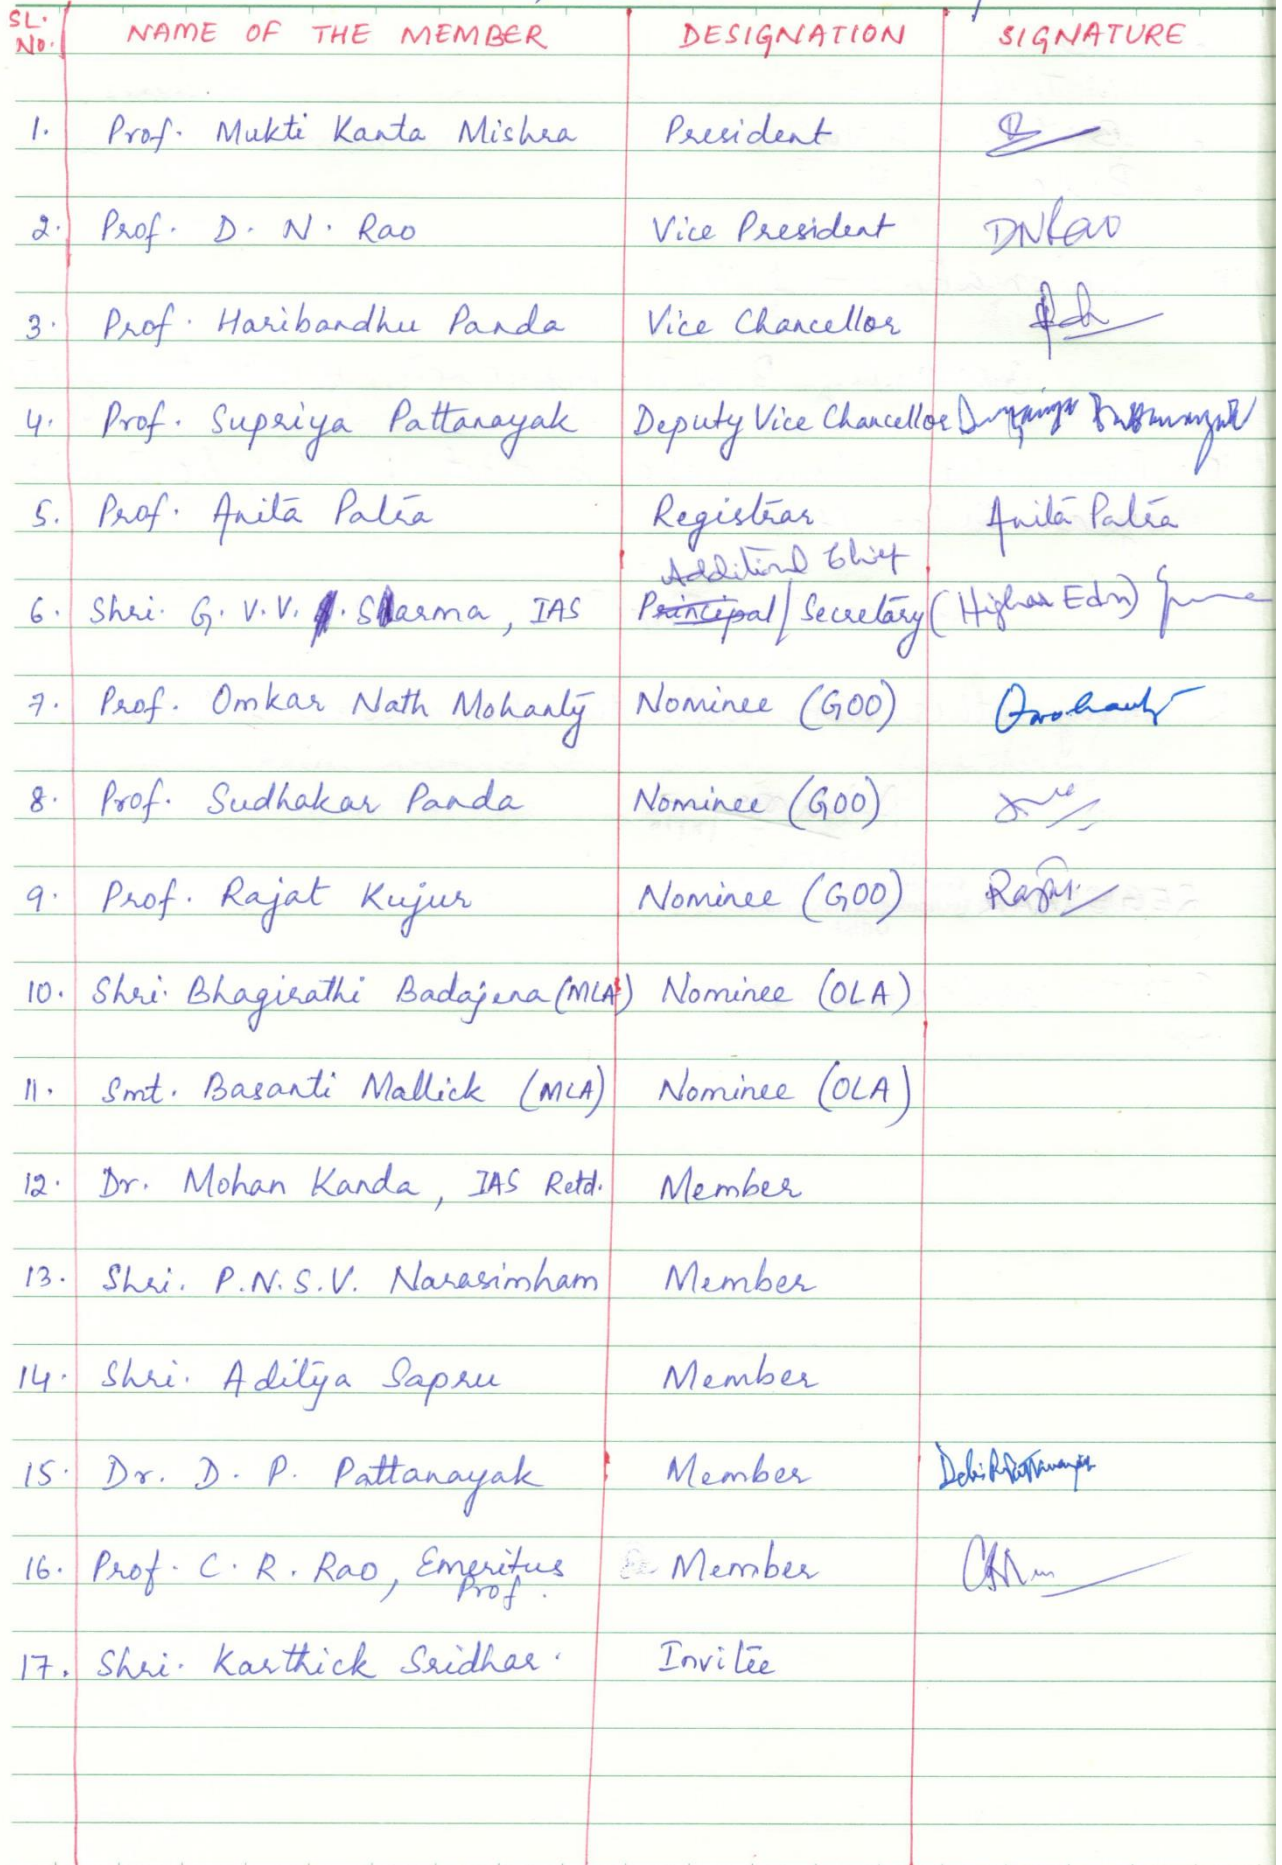 SL. No. NAME OF THE MEMBER DESIGNATION SIGNATURE
1. Prof. Mukti Kanta Mishra President
2. Prof. D. N. Rao Vice President DNRao
3. Prof. Haribandhu Panda Vice Chancellor
4. Prof. Supriya Pattanayak Deputy Vice Chancellor
5. Prof. Anita Patra Registrar Anita Patra
Additional Chief
6. Shri. G. V. V. Sharma, IAS Principal/Secretary (Higher Edn)
7. Prof. Omkar Nath Mohanty Nominee (GOO) Omohanty
8. Prof. Sudhakar Panda Nominee (GOO)
9. Prof. Rajat Kujur Nominee (GOO)
10. Shri. Bhagirathi Badajena (MLA) Nominee (OLA)
11. Smt. Basanti Mallick (MLA) Nominee (OLA)
12. Dr. Mohan Kanda, IAS Retd. Member
13. Shri. P.N.S.V. Narasimham Member
14. Shri. Aditya Sapru Member
15. Dr. D. P. Pattanayak Member
16. Prof. C. R. Rao, Emeritus Member
Prof.
17. Shri. Karthick Sridhar. Invitee